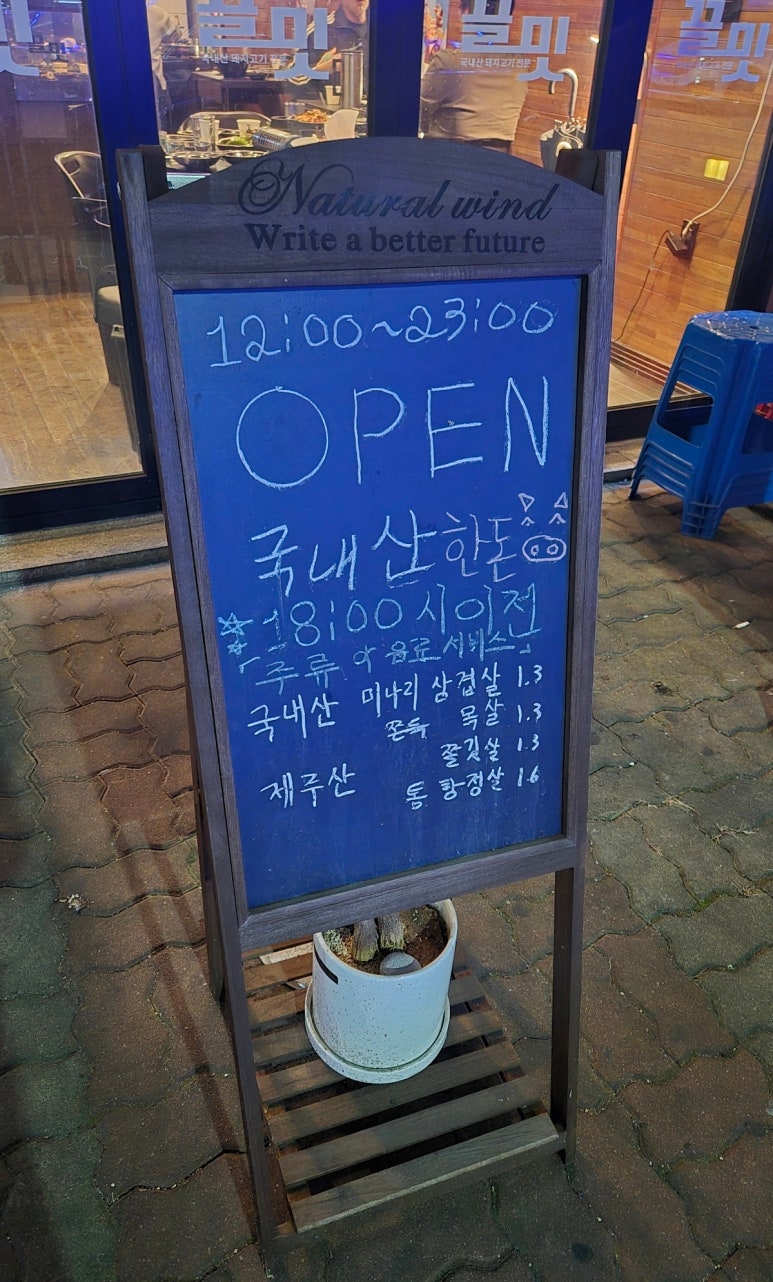 끌맛 끌맛 끌맛
국내산 돼지고기 전문 국내산 돼지고기 전문
Natural wind
Write a better future
12:00~23:00
OPEN
국내산 한돈
☆18:00시 이전
☆「주류 or 음료 서비스」
국내산 미나리 삼겹살 1.3
쫀득 목살 1.3
쫄깃살 1.3
제주산 통항정살 1.6